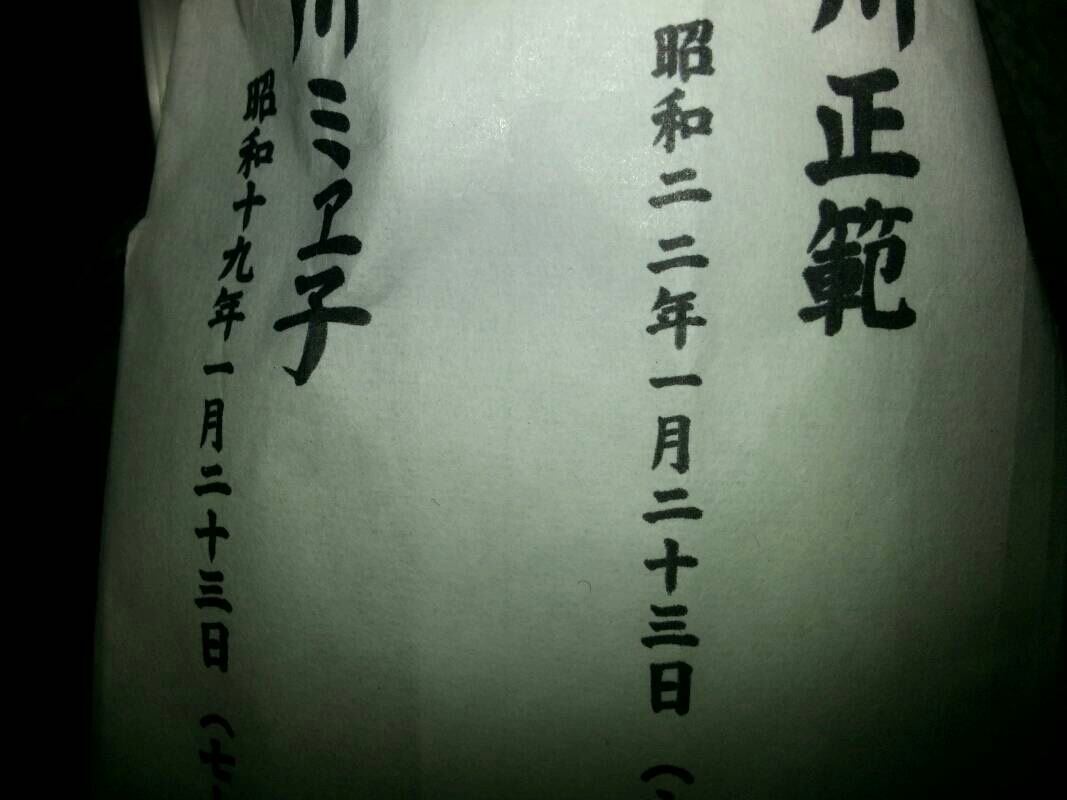 川正範
昭和二二年一月二十三日（
川ミヱ子
昭和十九年一月二十三日（七